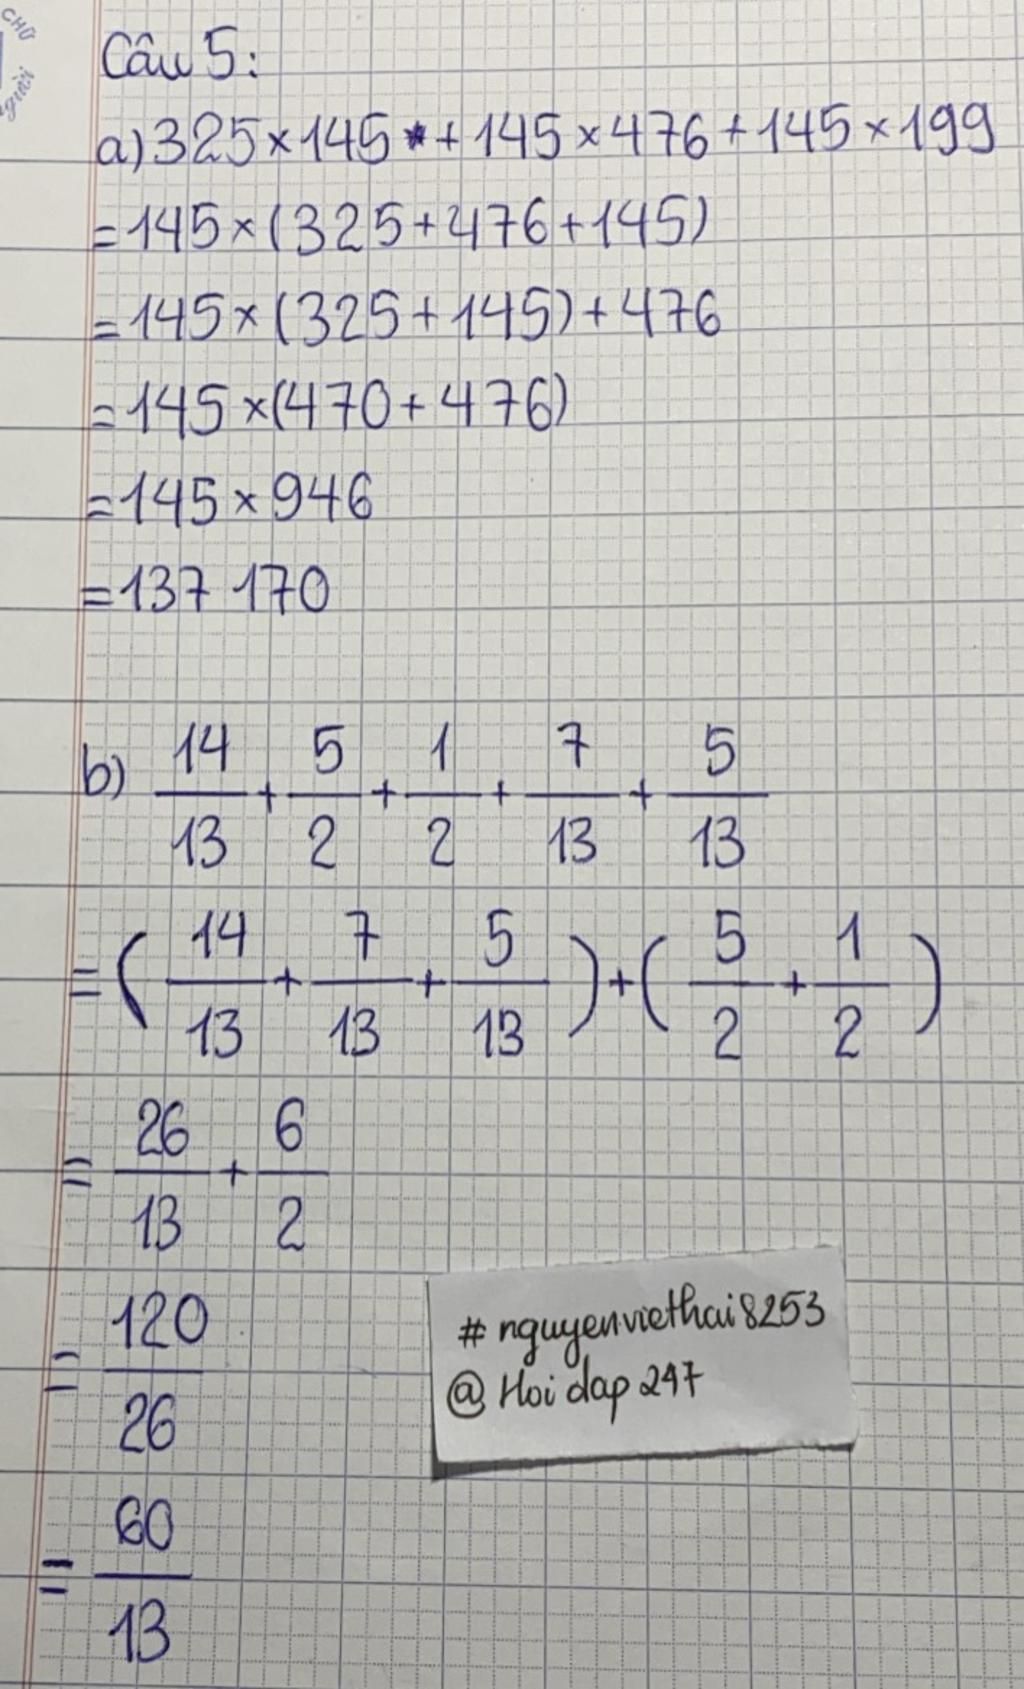 CHỮ
người
Câu 5:
a) 325 × 145 + 145 × 476 + 145 × 199
= 145 × (325 + 476 + 145)
= 145 × (325 + 145) + 476
= 145 × (470 + 476)
= 145 × 946
= 137 170
b) 14/13 + 5/2 + 1/2 + 7/13 + 5/13
= (14/13 + 7/13 + 5/13) + (5/2 + 1/2)
= 26/13 + 6/2
= 120/26
= 60/13
# nguyenviethai8253
@ Hoi dap 247